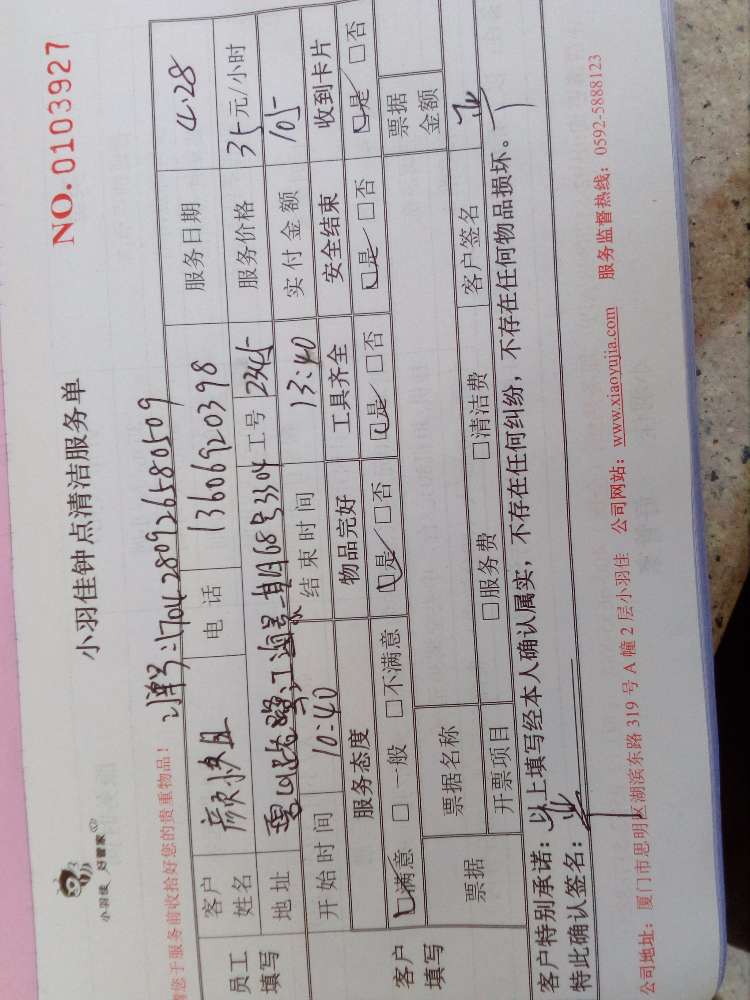 小羽佳 好管家
小羽佳钟点清洁服务单
NO.0103927
您于服务前收拾好您的贵重物品！
订单号:1704280926580509
员工填写 客户姓名 颜 姐 电话 13606920398 服务日期 4.28
地址 68号3304 工号 2345 服务价格 35元/小时
开始时间 10:40 结束时间 13:40 实付金额 105
客户填写 服务态度 物品完好 工具齐全 安全结束 收到卡片
□满意 □一般 □不满意 □是 □否 □是 □否 □是 □否 □是 □否
票据 票据名称 票据金额
开票项目 □服务费 □清洁费 客户签名
客户特别承诺：以上填写经本人确认属实，不存在任何纠纷，不存在任何物品损坏。
特此确认签名：
公司地址：厦门市思明区湖滨东路 319 号 A 幢 2 层小羽佳 公司网站：www.xiaoyujia.com 服务监督热线：0592-5888123